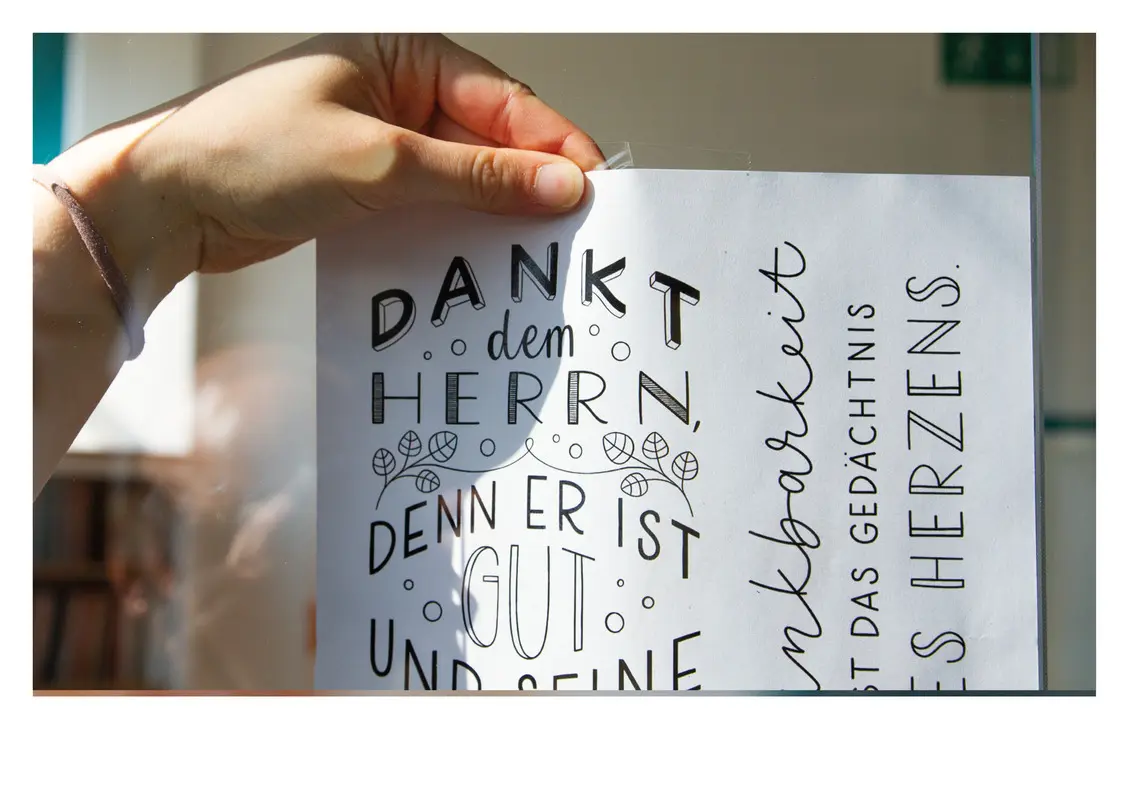 DANKT
dem
HERRN,
DENN ER IST
GUT
UND SEINE
nkbarkeit
ST DAS GEDÄCHTNIS
ES HERZENS.